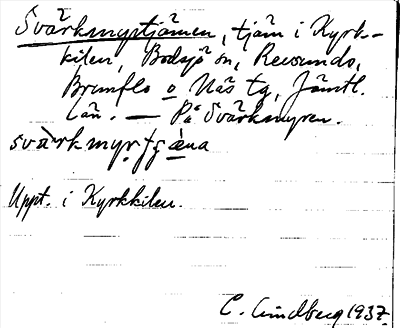 Svärkmyrtjärnen, tjärn i Kyrk-
kilen, Bodsjö sn, Revsunds,
Brunflo o Näs tg, Jämtl.
län. — På Svärkmyren.
svärkmyrtjgæna
Uppt. i Kyrkkilen.
C. Lindberg 1937.